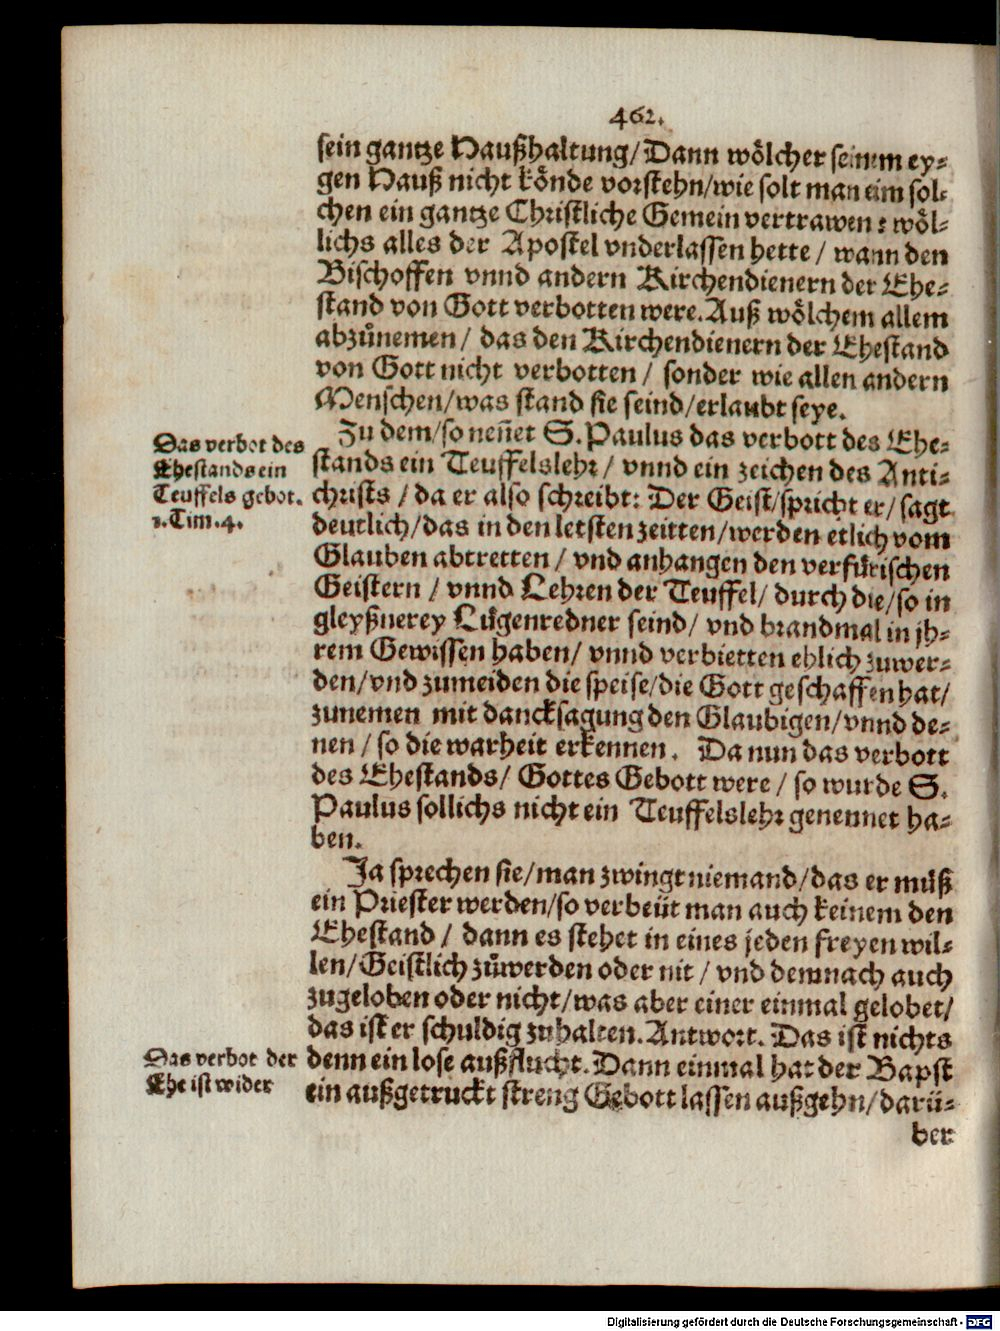 462.
sein gantze Haußhaltung/ Dann wölcher seinem ey-
gen Hauß nicht könde vorstehn/wie solt man eim sol-
chen ein gantze Christliche Gemein vertrawen: wöl-
lichs alles der Apostel vnderlassen hette / wann den
Bischoffen vnnd andern Kirchendienern der Ehe-
stand von Gott verbotten were. Auß wölchem allem
abzůnemen / das den Kirchendienern der Ehestand
von Gott nicht verbotten / sonder wie allen andern
Menschen/was stand sie seind/erlaubt seye.
Zu dem/so neñet S. Paulus das verbott des Ehe-
stands ein Teuffelslehr / vnnd ein zeichen des Anti-
christs / da er also schreibt: Der Geist/spricht er/ sagt
deutlich/das in den letsten zeitten/werden etlich vom
Glauben abtretten / vnd anhangen den verfürischen
Geistern / vnnd Lehren der Teuffel/ durch die/so in
gleyßnerey Lügenredner seind/ vnd brandmal in jh-
rem Gewissen haben/ vnnd verbietten ehlich zuwer-
den/vnd zumeiden die speise/die Gott geschaffen hat/
zunemen mit dancksagung den Glaubigen/vnnd de-
nen / so die warheit erkennen. Da nun das verbott
des Ehestands/ Gottes Gebott were / so wurde S.
Paulus sollichs nicht ein Teuffelslehr genennet ha-
ben.
Ja sprechen sie/man zwingt niemand/das er müß
ein Priester werden/so verbeüt man auch keinem den
Ehestand / dann es stehet in eines jeden freyen wil-
len/Geistlich zůwerden oder nit / vnd demnach auch
zugeloben oder nicht/was aber einer einmal gelobet/
das ist er schuldig zuhalten. Antwort. Das ist nichts
denn ein lose außflucht. Dann einmal hat der Bapst
ein außgetruckt streng Gebott lassen außgehn/darü-
ber
Das verbot des
Ehestands ein
Teuffels gebot.
1. Tim. 4.
Das verbot der
Ehe ist wider
Digitalisierung gefördert durch die Deutsche Forschungsgemeinschaft - DFG